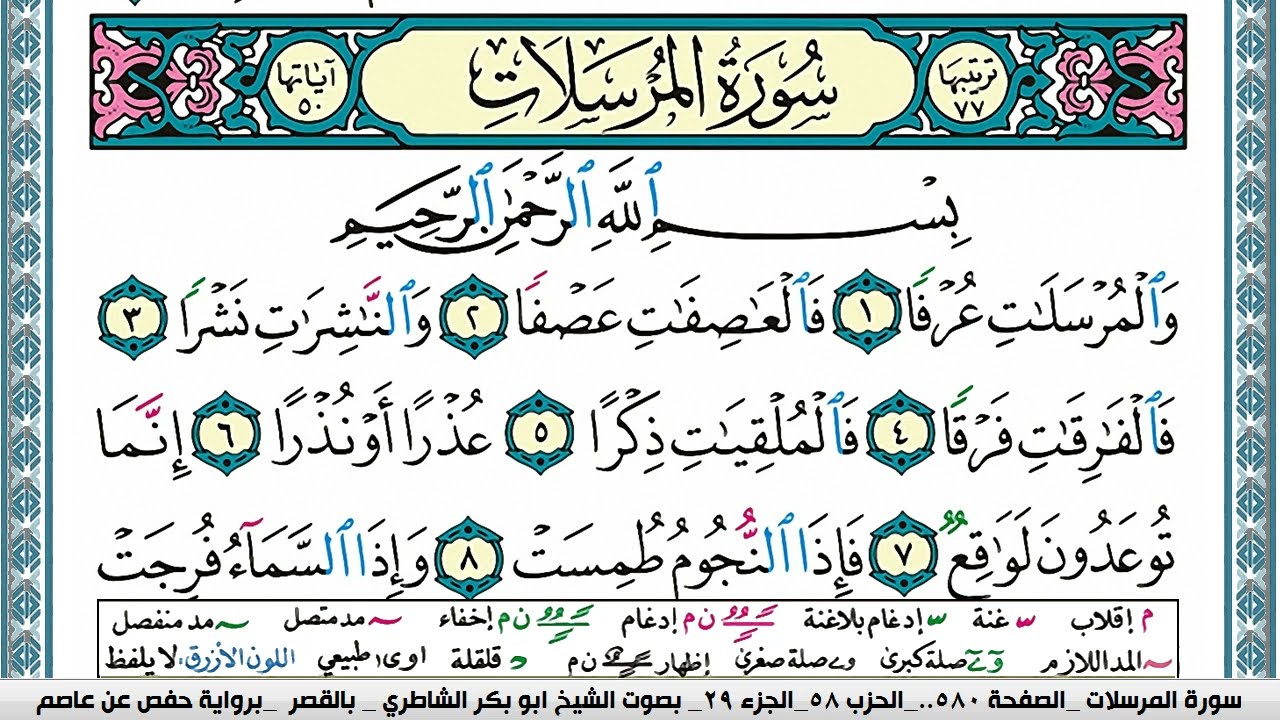 ترتيبها ٧٧
سُورَةُ المُرْسَلَاتِ
آيَاتها ٥٠
بِسْمِ ٱللَّهِ ٱلرَّحْمَٰنِ ٱلرَّحِيمِ
وَٱلْمُرْسَلَٰتِ عُرْفًا ١ فَٱلْعَٰصِفَٰتِ عَصْفًا ٢ وَٱلنَّٰشِرَٰتِ نَشْرًا ٣
فَٱلْفَٰرِقَٰتِ فَرْقًا ٤ فَٱلْمُلْقِيَٰتِ ذِكْرًا ٥ عُذْرًا أَوْ نُذْرًا ٦ إِنَّمَا
تُوعَدُونَ لَوَٰقِعٌ ٧ فَإِذَا ٱلنُّجُومُ طُمِسَتْ ٨ وَإِذَا ٱلسَّمَآءُ فُرِجَتْ
م إقلاب س غنة س إدغام بلاغنة ن م إدغام ن م إخفاء مد متصل مد منفصل
المد اللازم صلة كبرى صلة صغرى ن م إظهار د قلقلة ا و ى طبيعي اللون الأزرق: لا يلفظ
سورة المرسلات _الصفحة ٥٨٠.._الحزب ٥٨_الجزء ٢٩_ بصوت الشيخ ابو بكر الشاطري _ بالقصر _برواية حفص عن عاصم